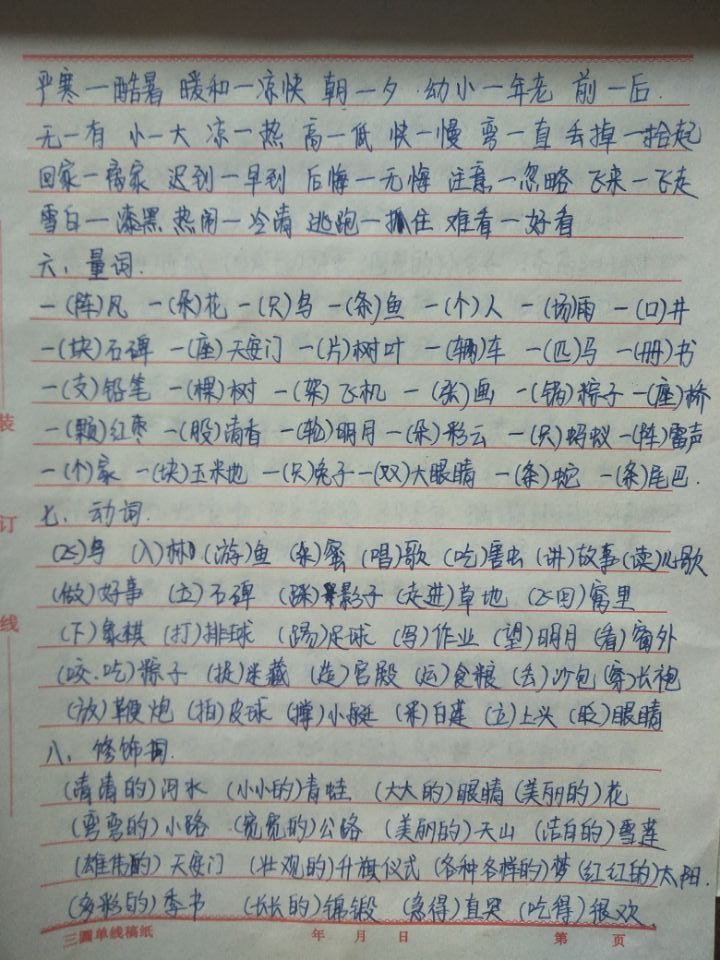 严寒一酷暑 暖和一凉快 朝一夕 幼小一年老 前一后.
无一有 小一大 凉一热 高一低 快一慢 弯一直 丢掉一拾起
回家一离家 迟到一早到 后悔一无悔 注意一忽略 飞来一飞走
雪白一漆黑 热闹一冷清 逃跑一抓住 难看一好看
六、量词.
一(阵)风 一(朵)花 一(只)鸟 一(条)鱼 一(个)人 一(场)雨 一(口)井
一(块)石碑 一(座)天安门 一(片)树叶 一(辆)车 一(匹)马 一(册)书
一(支)铅笔 一(棵)树 一(架)飞机 一(张)画 一(锅)粽子 一(座)桥
一(颗)红枣 一(股)清香 一(轮)明月 一(朵)彩云 一(只)蚂蚁 一(阵)雷声
一(个)家 一(块)玉米地 一(只)兔子 一(双)大眼睛 一(条)蛇 一(条)尾巴.
七、动词.
(飞)鸟 (入)林 (游)鱼 (采)蜜 (唱)歌 (吃)害虫 (讲)故事 (读)儿歌
(做)好事 (立)石碑 (踩)影子 (走进)草地 (飞回)窝里
(下)象棋 (打)排球 (踢)足球 (写)作业 (望)明月 (看)窗外
(咬.吃)粽子 (捉)迷藏 (造)宫殿 (运)食粮 (丢)沙包 (穿)长袍
(放)鞭炮 (拍)皮球 (撑)小艇 (采)白莲 (立)上头 (眨)眼睛
八、修饰词.
(清清的)河水 (小小的)青蛙 (大大的)眼睛 (美丽的)花
(弯弯的)小路 (宽宽的)公路 (美丽的)天山 (洁白的)雪莲
(雄伟的)天安门 (壮观的)升旗仪式 (各种各样的)梦 (红红的)太阳.
(多彩的)季书 (长长的)锦锻 (急得)直哭 (吃得)很欢.
三圆单线稿纸 年 月 日 第 页
装
订
线